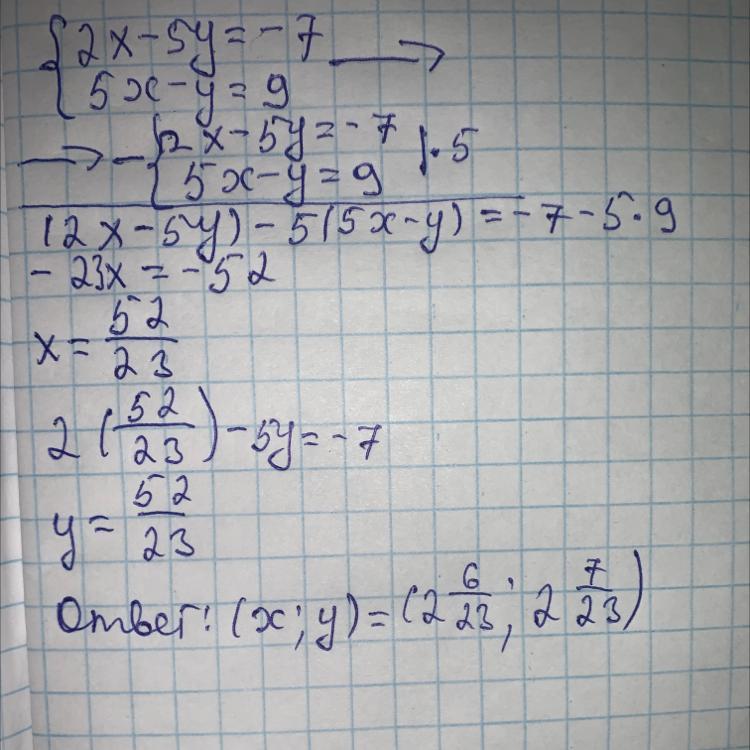 {2x-5y=-7 →
5x-y=9
→ -{2x-5y=-7 |·5
5x-y=9
(2x-5y)-5(5x-y)=-7-5·9
-23x=-52
x=52/23
2(52/23)-5y=-7
y=52/23
Ответ: (x;y)=(2 6/23; 2 7/23)